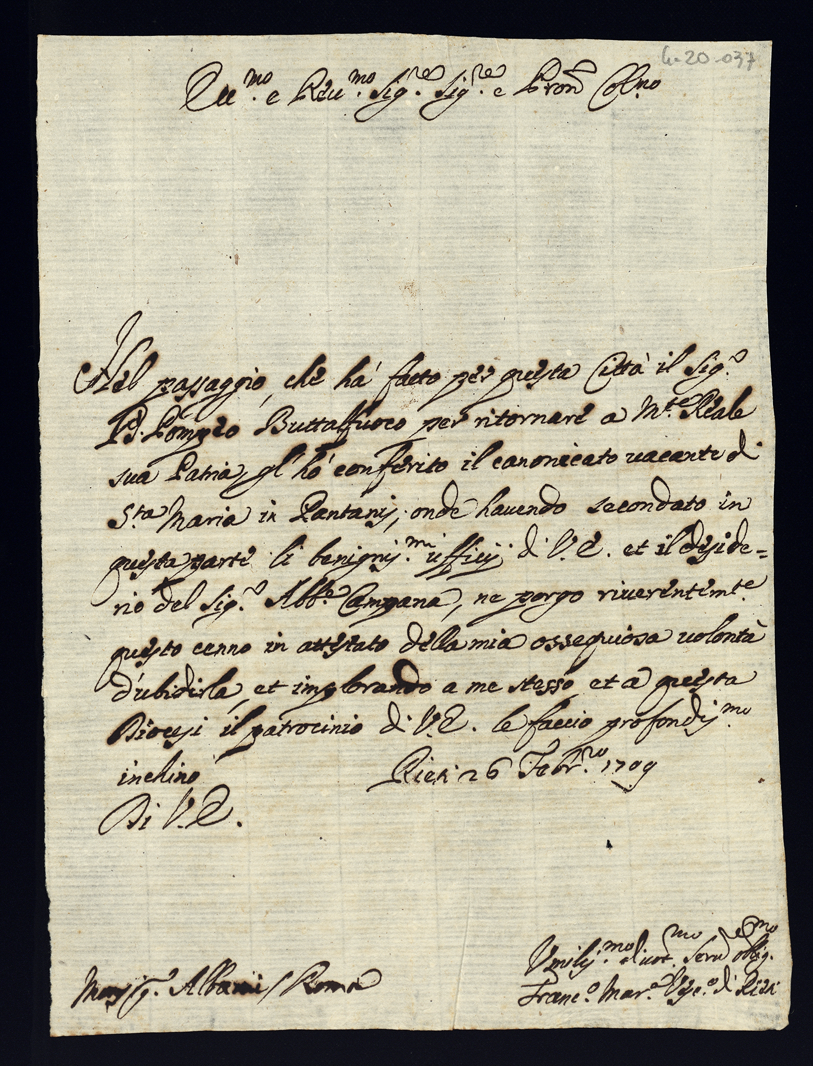 4-20-037
Ill.mo e Reu.mo Sig.re Sig.re e Pron Col.mo
Nel passaggio, che há fatto per questa Città il Sig.r
Pompeo Buttafuoco per ritornare a M.te Reale
sua Patria, gl'hó conferito il canonicato uacante di
S.ta Maria in Pantanis, onde hauendo secondato in
questa parte li benignis.mi ufficij di V.E. et il deside=
rio del Sig.r Abb.e Campana, ne porgo riuerentem.te
questo cenno in attestato della mia ossequiosa uolontà
d'ubidirla, et implorando a me stesso, et a questa
Diocesi il patrocinio di V.E. le faccio profondis.mo
inchino Rieti 26 Febr.ro 1709
Di V.E.
Umilis.mo diuot.mo Seru oblig.mo
Monsig.r Albani / Roma
Franc.o Mar.a Vesc.o di Rieti